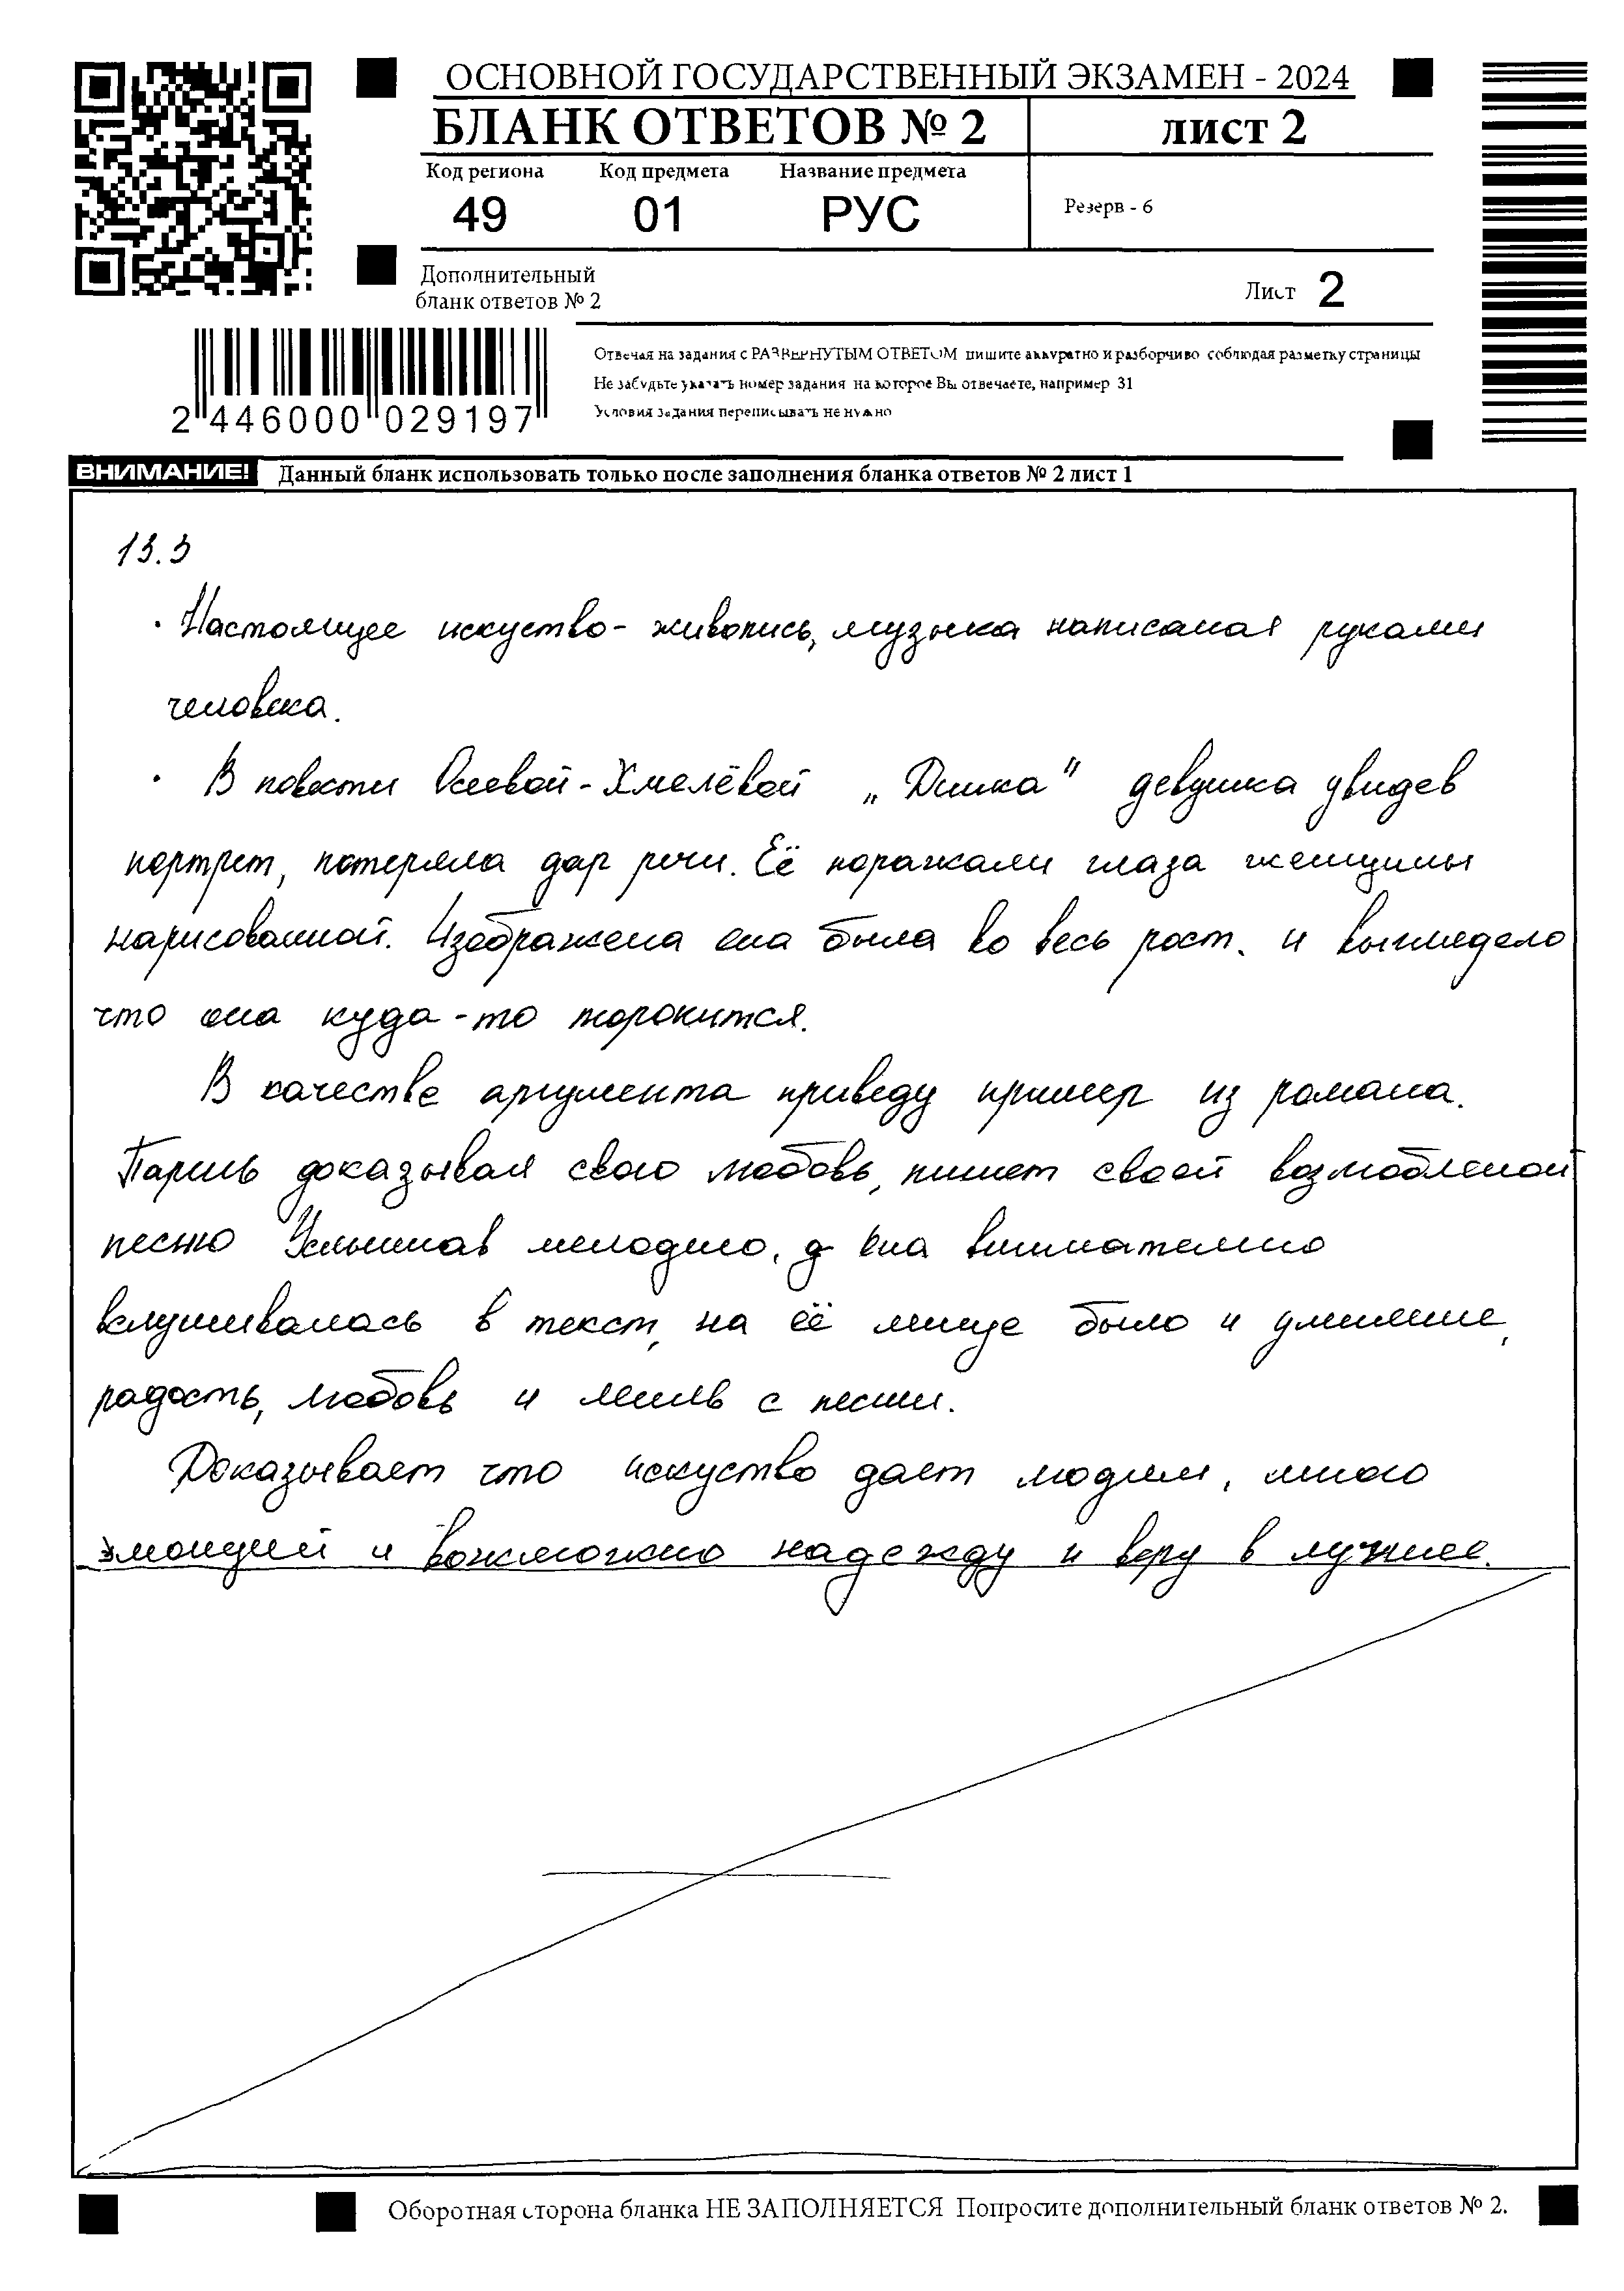 ОСНОВНОЙ ГОСУДАРСТВЕННЫЙ ЭКЗАМЕН - 2024
БЛАНК ОТВЕТОВ № 2
ЛИСТ 2
Код региона Код предмета Название предмета
49 01 РУС
Резерв - 6
Дополнительный
бланк ответов № 2
Лист 2
Отвечая на задания с РАЗВЕРНУТЫМ ОТВЕТОМ пишите аккуратно и разборчиво соблюдая разметку страницы
Не забудьте указать номер задания на которое Вы отвечаете, например 31
Условия задания переписывать не нужно
2 446000 029197
ВНИМАНИЕ! Данный бланк использовать только после заполнения бланка ответов № 2 лист 1
13.3
· Настоящее искуство- живопись, музыка написаная руками
человека.
· В повести Осеевой-Хмелёвой „Динка" девушка увидев
портрет, потеряла дар речи. Её поражали глаза женщины
нарисованной. Изображена она была во весь рост. и выглядело
что она куда-то торопится.
В качестве аргумента приведу пример из романа.
Парень доказывая свою любовь, пишет своей возлюбленой
песню Услышав мелодию, она внимателно
вслушивалась в текст, на её лице было и умиление,
радость, любовь и с песни.
Доказывает что искуство дает людям, много
эмоций и вожможно надежду и веру в лучшее.
Оборотная сторона бланка НЕ ЗАПОЛНЯЕТСЯ Попросите дополнительный бланк ответов № 2.